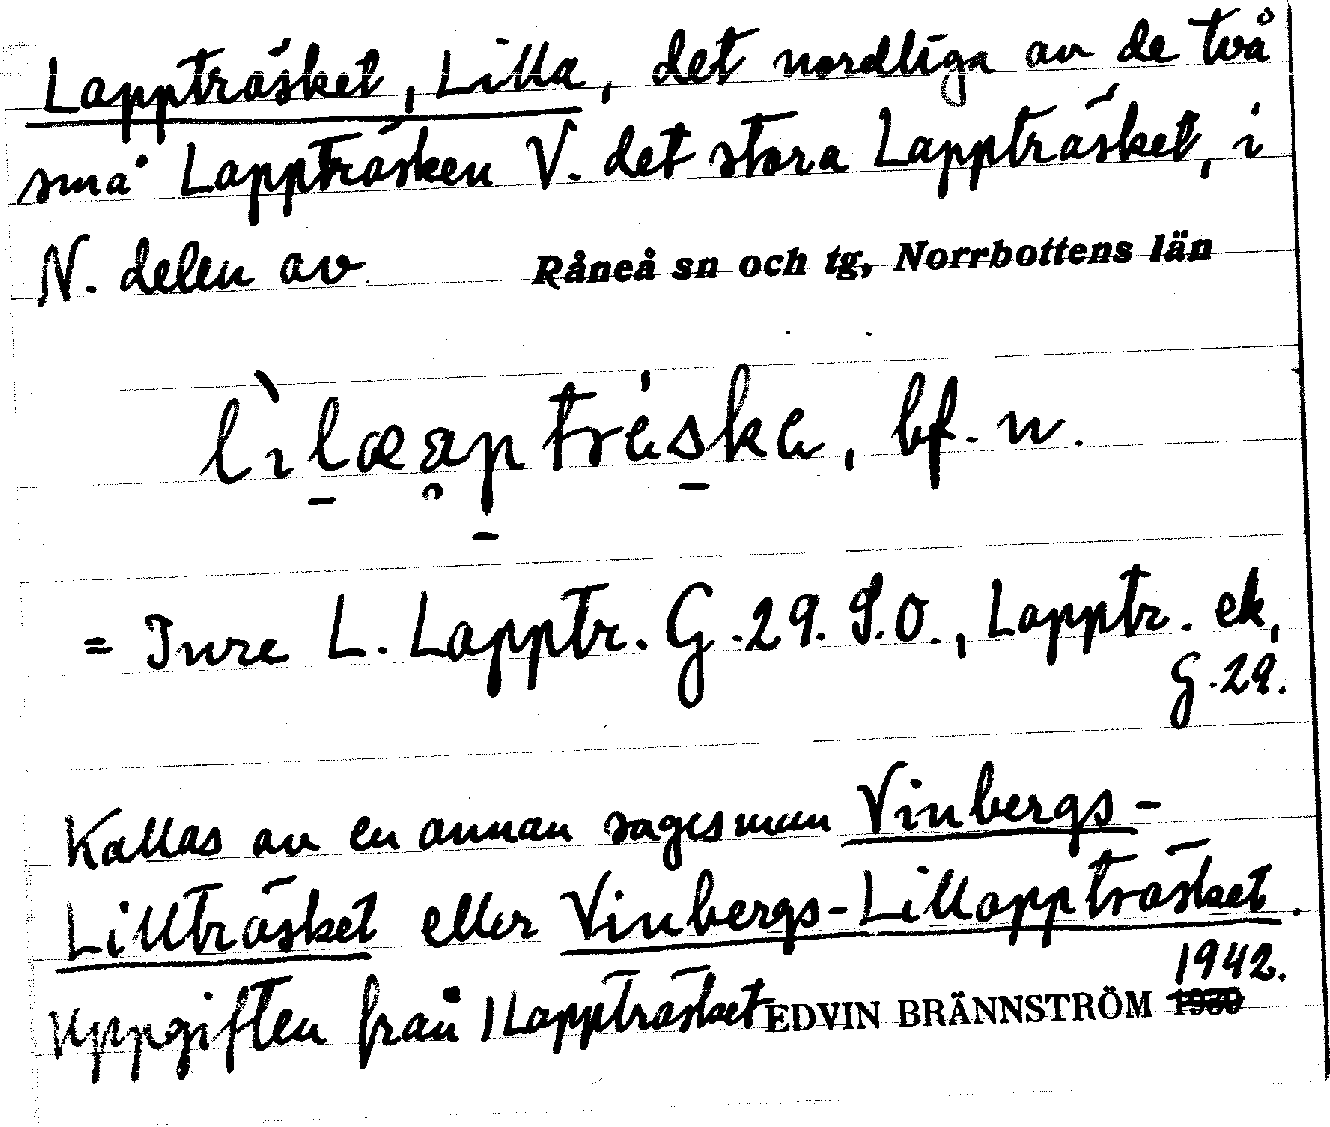 Lappträsket, Lilla, det nordliga av de två
små Lappträsken V. det stora Lappträsket, i
N. delen av Råneå sn och tg, Norrbottens län
bf. n.
= Inre L. Lapptr. G.29. S.O., Lapptr. ek,
G.29.
Kallas av en annan sagesman Vinbergs-
Lillträsket eller Vinbergs-Lillappträsket.
1942.
Uppgiften från Lappträsket EDVIN BRÄNNSTRÖM 1930